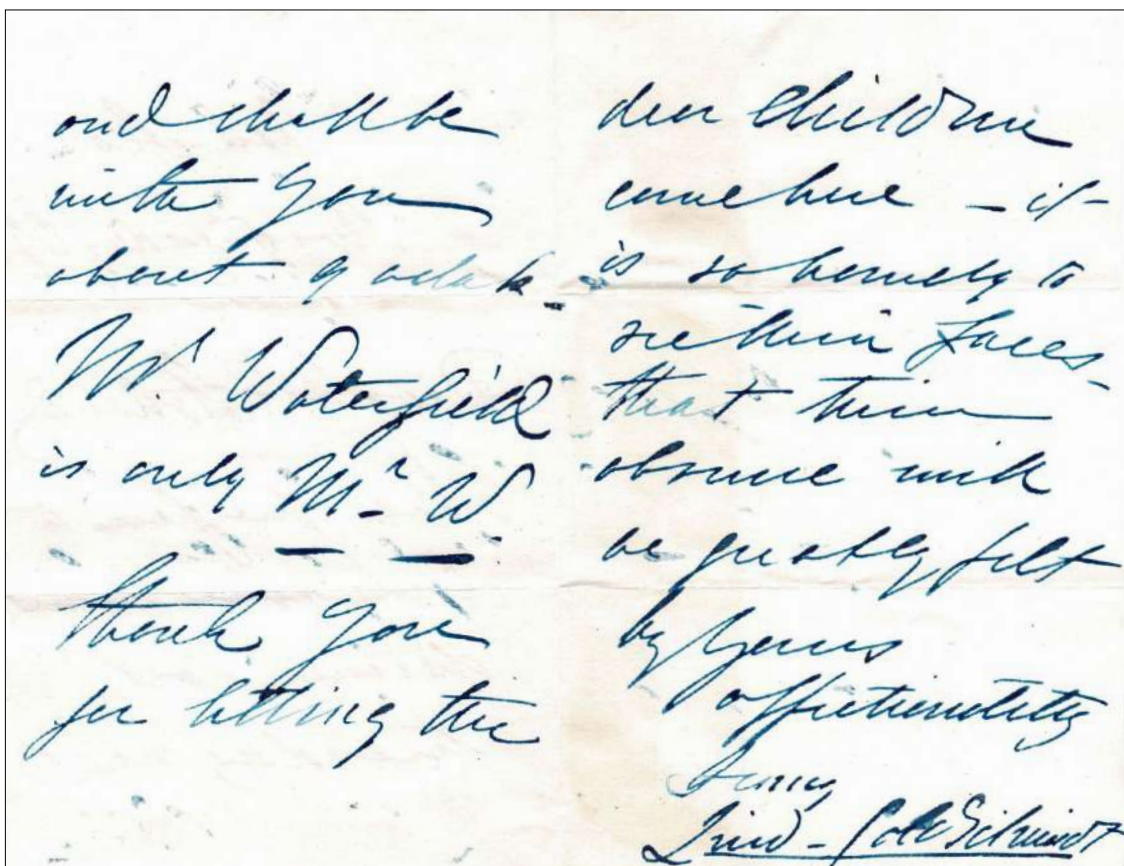 and shall be
with you
about 9 oclock
Mr Waterfield
is only Mr. W
thank you
for letting the
dear Children
come here – it
is so homely to
see their faces –
that their
absence will
be greatly felt
by yours
affectionately
Jenny
Lind – Goldschmidt